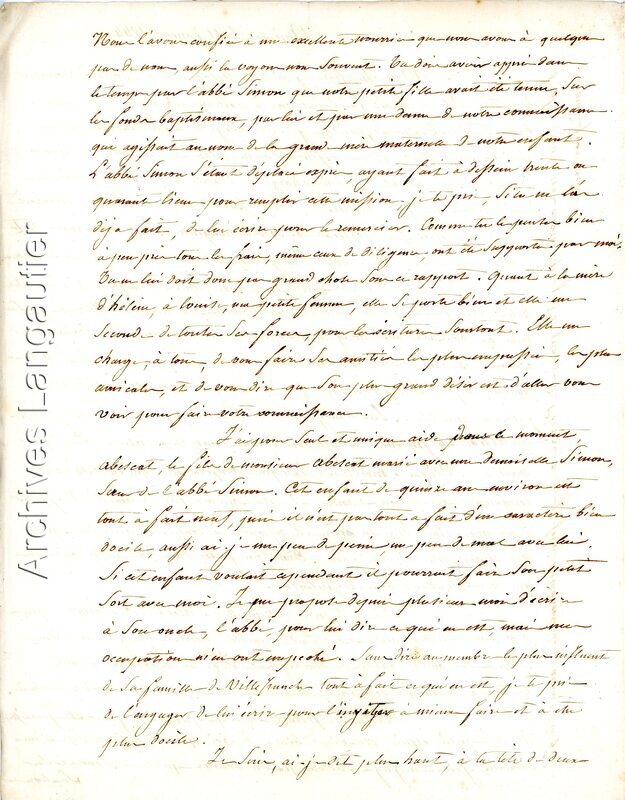 Nous l'avons confiée à une excellente nourrice que nous avons à quelque
pas de nous, aussi la voyons nous souvent. Tu dois avoir appris dans
le temps par l'abbé Simon que notre petite fille avait été tenue, sur
les fonds baptismaux, par lui et par une dame de notre connaissance
qui agissait au nom de la grand mère maternelle de notre enfant.
L'abbé Simon s'étant déplacé exprès, ayant fait à dessein trente ou
quarante lieues pour remplir cette mission je te prie, si tu ne l'as
déjà fait, de lui écrire pour le remercier. Comme tu le penses bien
à peu près tous les frais, même ceux de diligence, ont été supportés par moi.
On ne lui doit donc pas grand chose sous ce rapport. Quant à la mère
d'hélène, à louise, ma petite femme, elle se porte bien et elle me
seconde de toutes ses forces, pour les écritures surtout. Elle me
charge, à tous, de vous faire ses amitiés les plus empressées, les plus
amicales, et de vous dire que son plus grand désir est d'aller vous
voir pour faire votre connaissance.
J'ai pour seul et unique aide dans le moment,
abescat, le fils de monsieur abescat marié avec une demoiselle Simon,
sœur de l'abbé Simon. Cet enfant de quinze ans environ est
tout à fait neuf, puis il n'est pas tout à fait d'un caractère bien
docile, aussi ai-je un peu de peine, un peu de mal avec lui.
Si cet enfant voulait cependant il pourrait faire son petit
sort avec moi. Je me propose depuis plusieurs mois d'écrire
à son oncle, l'abbé, pour lui dire ce qui en est, mais mes
occupations m'en ont empêché. Sans dire au membre le plus influent
de sa famille de Villefranche tout à fait ce qui en est, je te prie
de l'engager de lui écrire pour l'inviter à mieux faire et à être
plus docile.
Je suis, ai-je dit plus haut, à la tête de deux
Archives Langautier